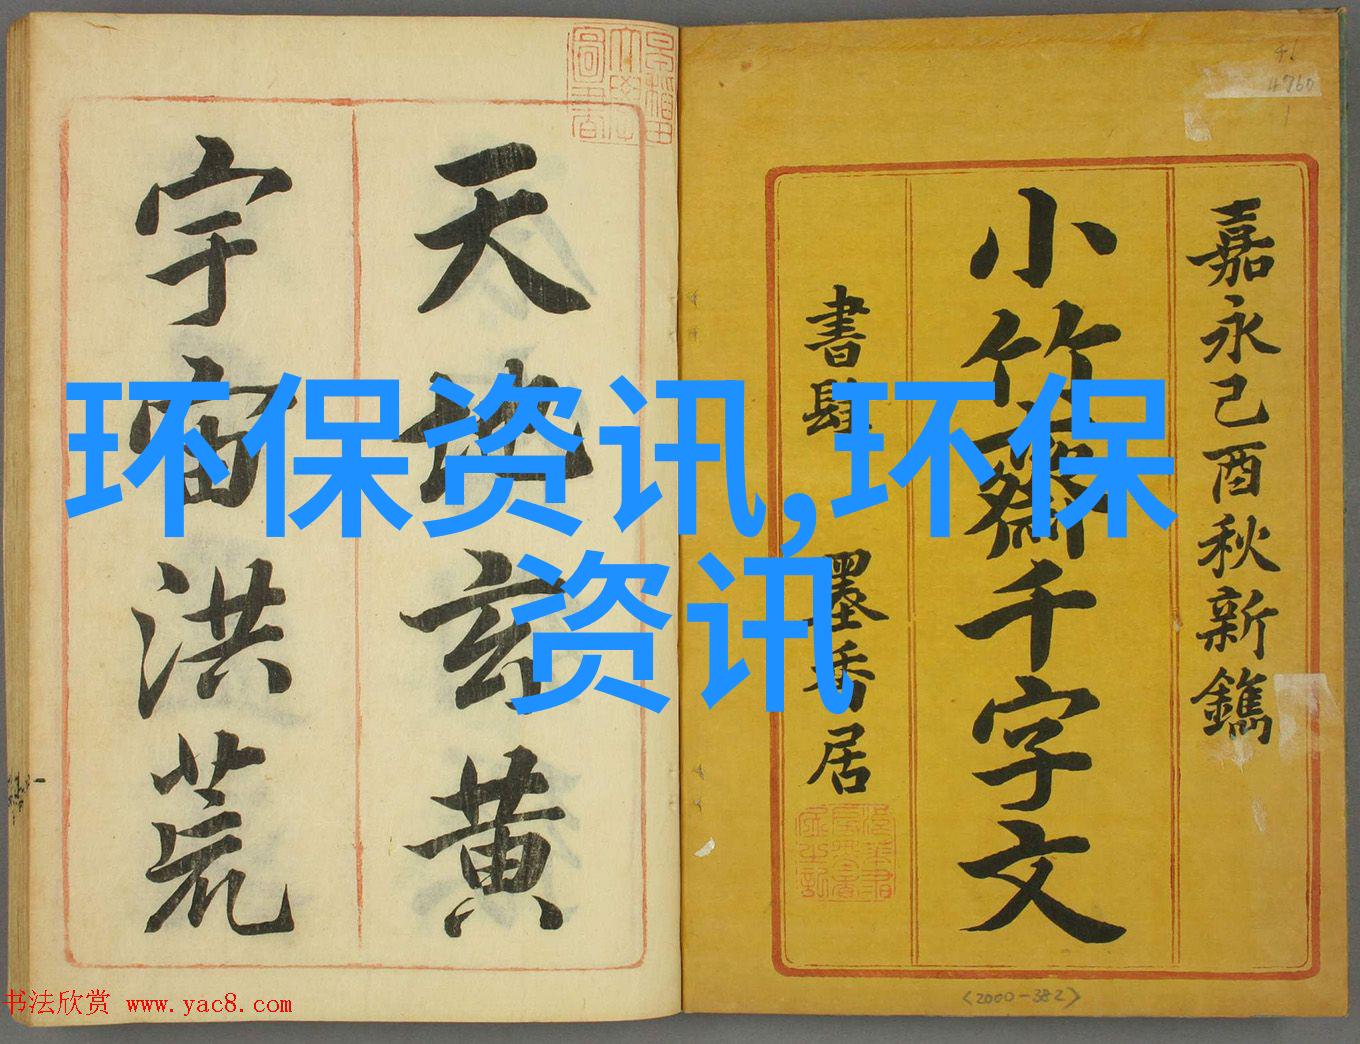 嘉永己酉秋新鐫
小竹齋千字文
書肆 墨香居
天地玄黃
宇宙洪荒
環保资讯,环保
资讯
书法欣赏 www.yac8.com
4760
<2000-382>